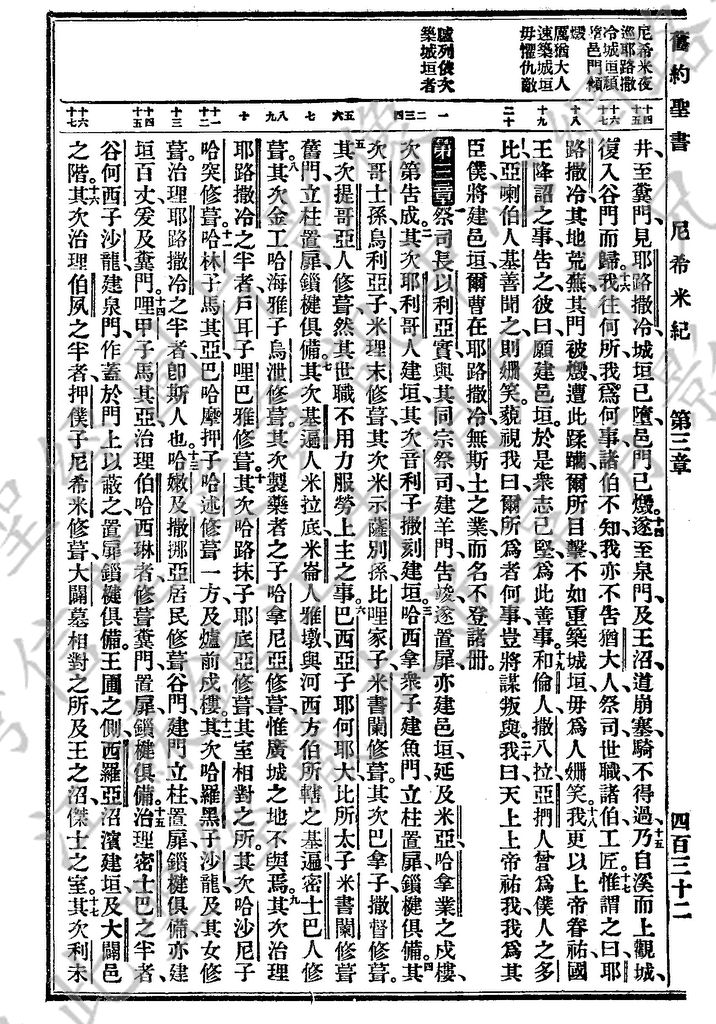 舊約聖書 尼希米紀 第三章 四百三十二
尼希米夜
巡耶路撒
冷城垣頹
墮邑門傾
燬
厲猶大人
速築城垣
毋懼仇敵
臚列依次
築城垣者
井至糞門見耶路撒冷城垣已墮邑門已燬十四遂至泉門及王沼道崩塞騎不得過十五乃自溪而上觀城
復入谷門而歸十六我往何所我爲何事諸伯不知我亦不告猶大人祭司世職諸伯工匠十七惟謂之曰耶
路撒冷其地荒蕪其門被燬遭此蹂躪爾所目擊不如重築城垣毋爲人姍笑十八我更以上帝眷祐國
王降詔之事告之彼曰願建邑垣於是衆志已堅爲此善事十九和倫人撒八拉亞捫人曾爲僕人之多
比亞喇伯人基善聞之則姍笑藐視我曰爾所爲者何事豈將謀叛與二十我曰天上上帝祐我我爲其
臣僕將建邑垣爾曹在耶路撒冷無斯土之業而名不登諸冊
第三章 祭司長以利亞實與其同宗祭司建羊門告竣遂置扉亦建邑垣延及米亞哈拿業之戍樓
次第告成二其次耶利哥人建垣其次音利子撒刻建垣三哈西拿衆子建魚門立柱置扉鎖楗俱備四其
次哥士孫烏利亞子米理末修葺其次米示薩別孫比哩家子米書闌修葺其次巴拿子撒督修葺
五其次提哥亞人修葺然其世職不用力服勞上主之事六巴西亞子耶何耶大比所太子米書闌修葺
舊門立柱置扉鎖楗俱備七其次基遍人米拉底米崙人雅墩與河西方伯所轄之基遍密士巴人修
葺八其次金工哈海雅子烏泄修葺其次製藥者之子哈拿尼亞修葺惟廣城之地不與焉九其次治理
耶路撒冷之半者戶耳子哩巴雅修葺十其次哈路抹子耶底亞修葺其室相對之所其次哈沙尼子
哈突修葺十一哈林子馬其亞巴哈摩押子哈述修葺一方及爐前戍樓十二其次哈羅黑子沙龍及其女修
葺治理耶路撒冷之半者卽斯人也十三哈嫩及撒挪亞居民修葺谷門建門立柱置扉鎖楗俱備亦建
垣百丈爰及糞門十四哩甲子馬其亞治理伯哈西琳者修葺糞門置扉鎖楗俱備十五治理密士巴之半者
谷何西子沙龍建泉門作蓋於門上以蔽之置扉鎖楗俱備王圃之側西羅亞沼濱建垣及大闢邑
之階十六其次治理伯夙之半者押僕子尼希米修葺大闢墓相對之所及王之沼傑士之室十七其次利未